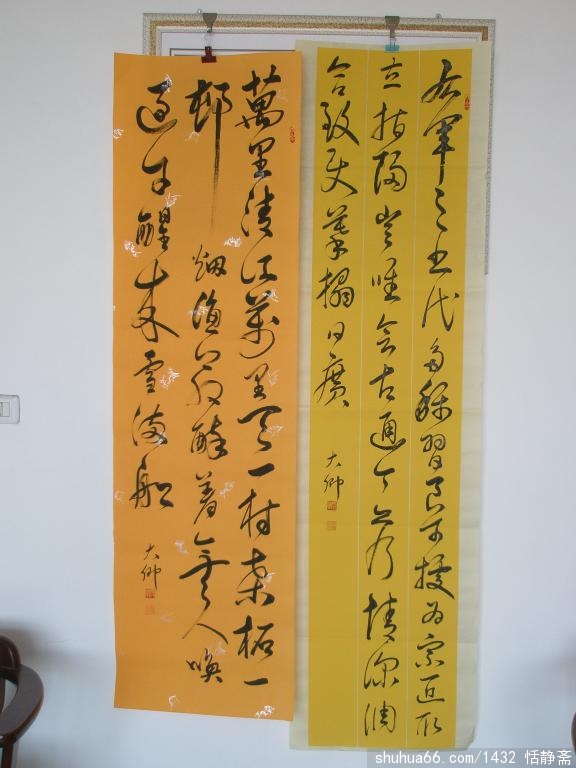 右軍之書代多稱習良可據為宗匠取
立指歸豈唯會古通今亦乃情深調
合致使摹搨日廣
萬里清江萬里天一村桑柘一
邨烟漁翁醉著無人喚
過午醒來雪滿船
shuhua66.com/1432 恬静斋